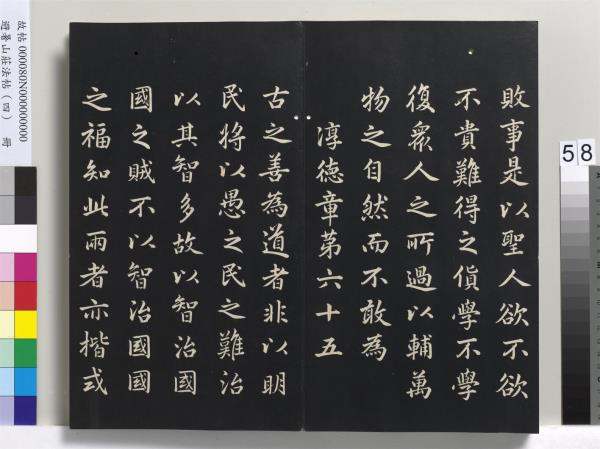 敗事是以聖人欲不欲
不貴難得之貨學不學
復衆人之所過以輔萬
物之自然而不敢為
淳德章第六十五
古之善為道者非以明
民將以愚之民之難治
以其智多故以智治國
國之賊不以智治國國
之福知此兩者亦楷式
故帖 000080N000000000
避暑山莊法帖(四) 冊
58